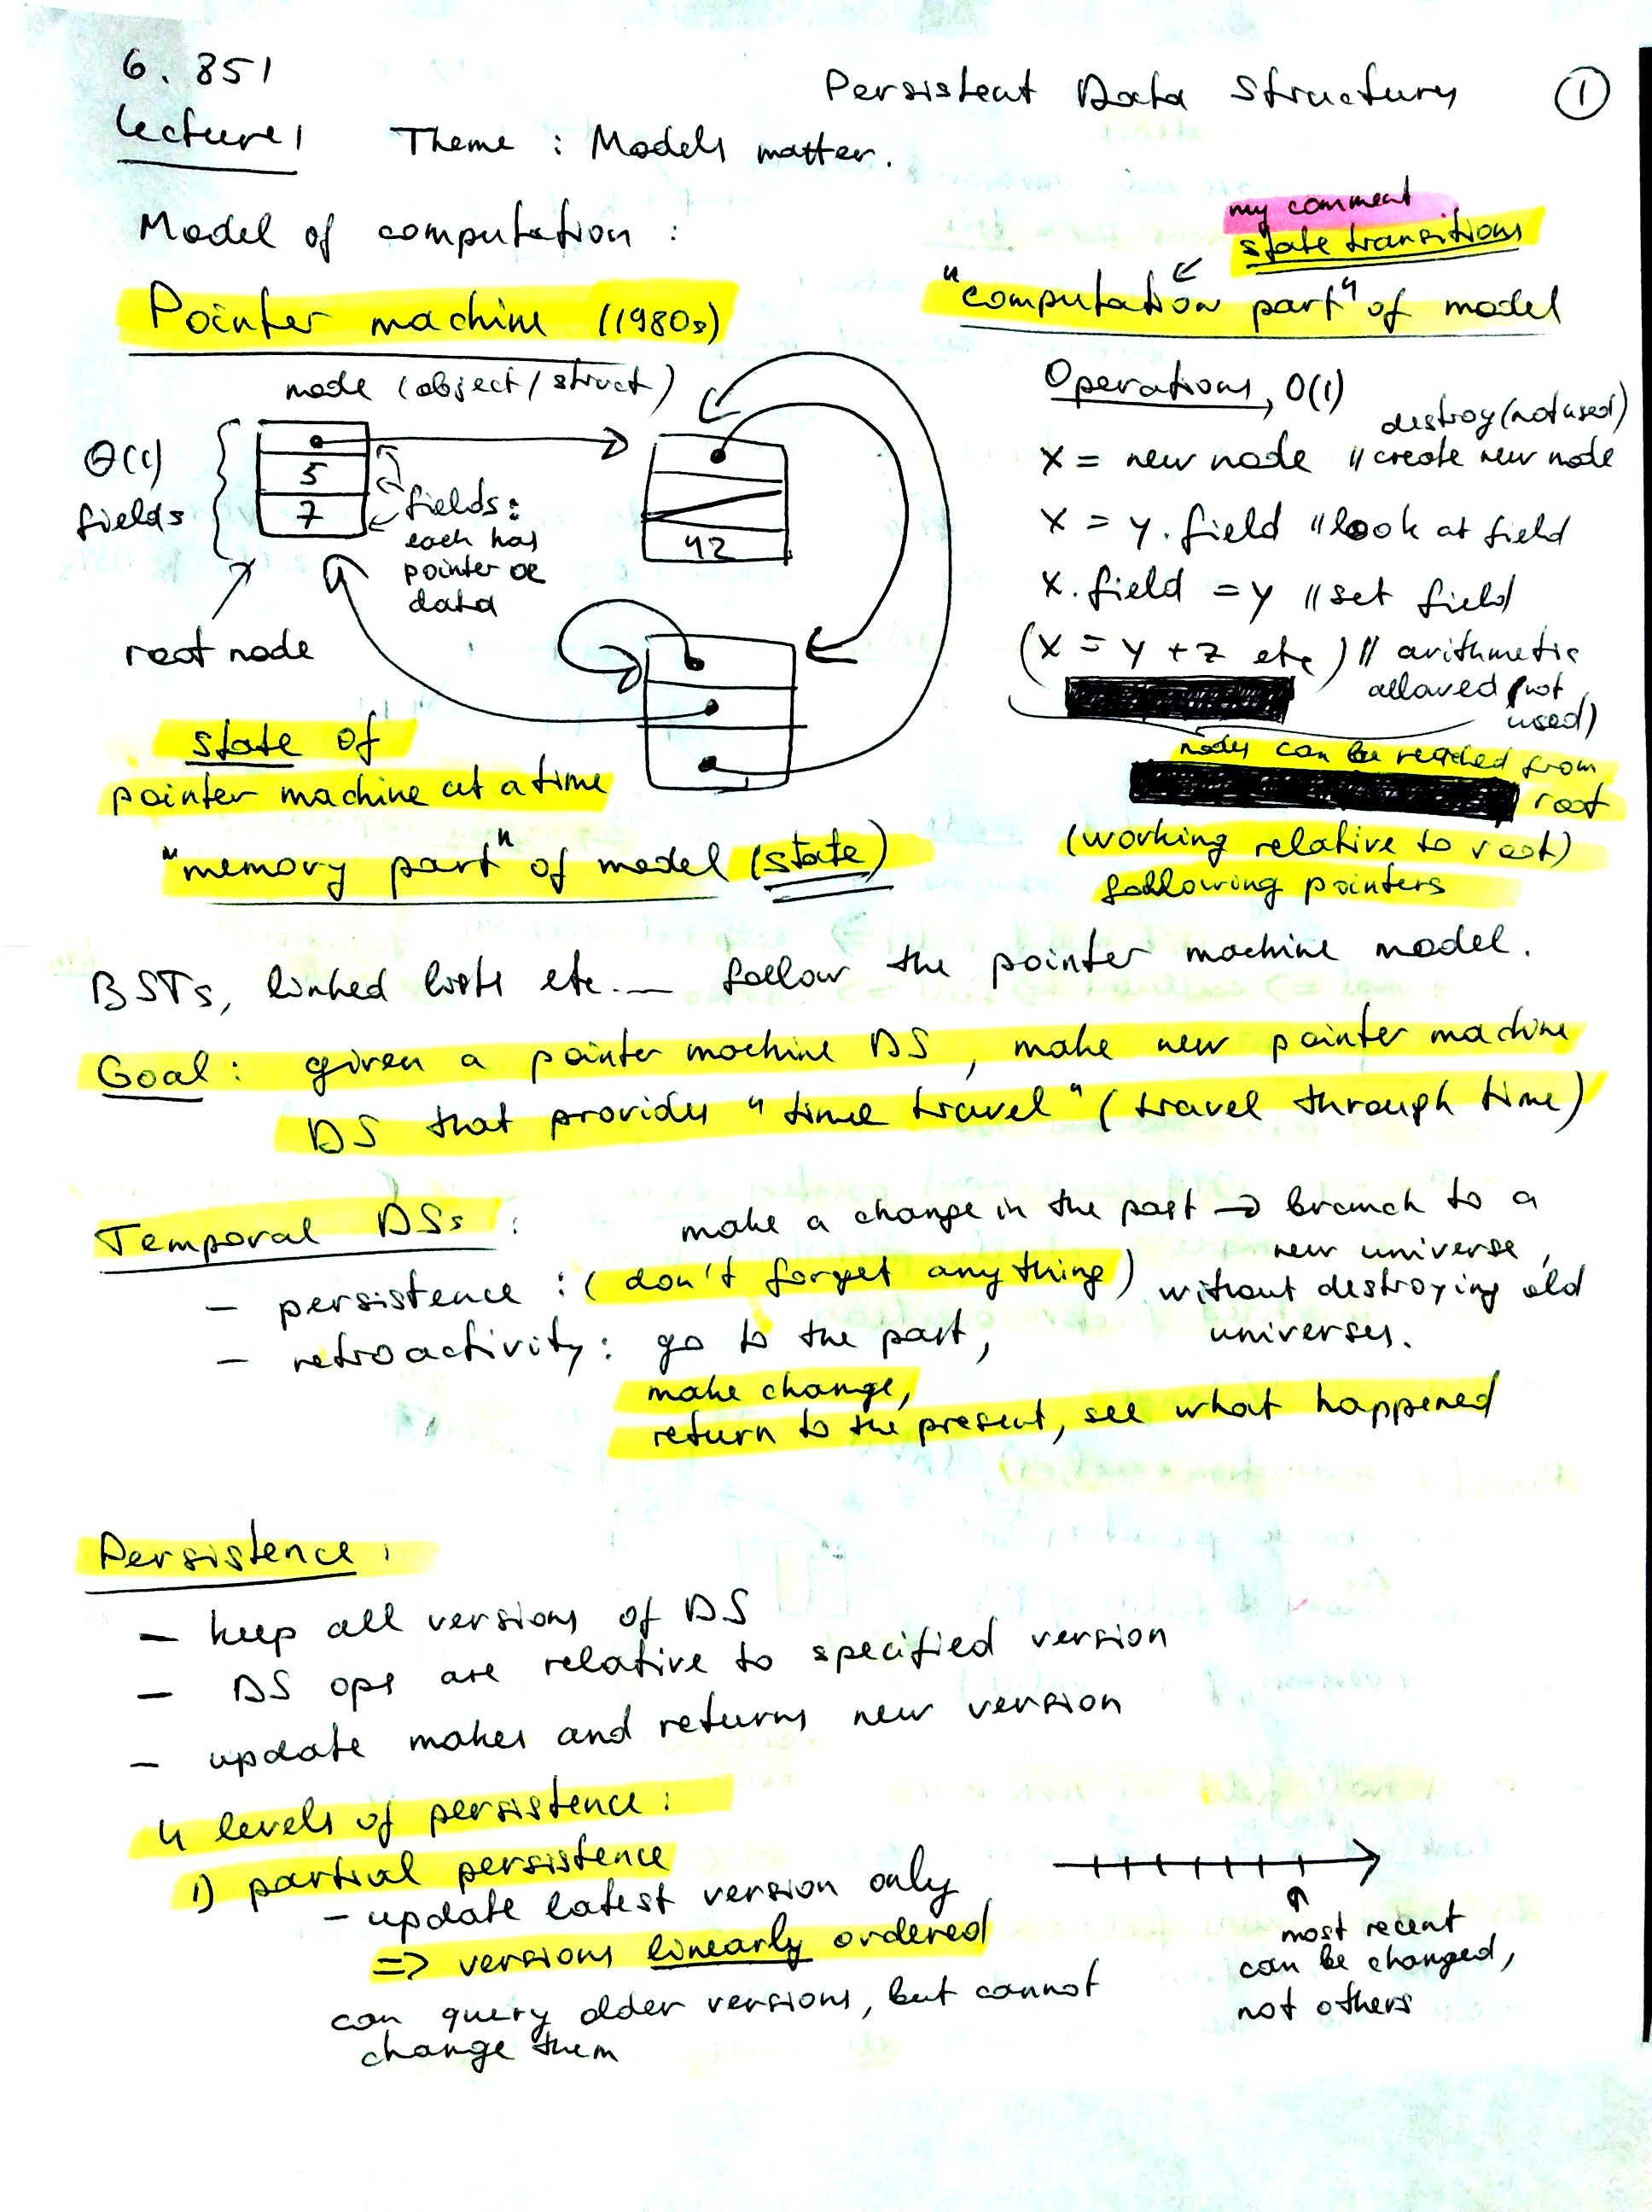 6.851
Persistent Data Structures
1
Lecture 1
Theme : Models matter.
Model of computation :
Pointer machine (1980s)
node (object/struct)
Θ(1)
fields
5
7
fields:
each has
pointer or
data
root node
42
state of
pointer machine at a time
"memory part" of model (state)
my comment
state transitions
"computation part" of model
Operations, O(1)
destroy (not used)
x = new node // create new node
x = y.field // look at field
x.field = y // set field
(x = y + z etc) // arithmetic
allowed (not
used)
nodes can be reached from
root
(working relative to root)
following pointers
BSTs, linked lists etc. — follow the pointer machine model.
Goal: given a pointer machine DS, make new pointer machine
DS that provides "time travel" (travel through time)
Temporal DSs :
make a change in the past → branch to a
new universe,
- persistence : (don't forget anything) without destroying old
universes.
- retroactivity: go to the past,
make change,
return to the present, see what happened
Persistence:
- keep all versions of DS
- DS ops are relative to specified version
- update makes and returns new version
4 levels of persistence:
1) partial persistence
- update latest version only
=> versions linearly ordered
can query older versions, but cannot
change them
most recent
can be changed,
not others